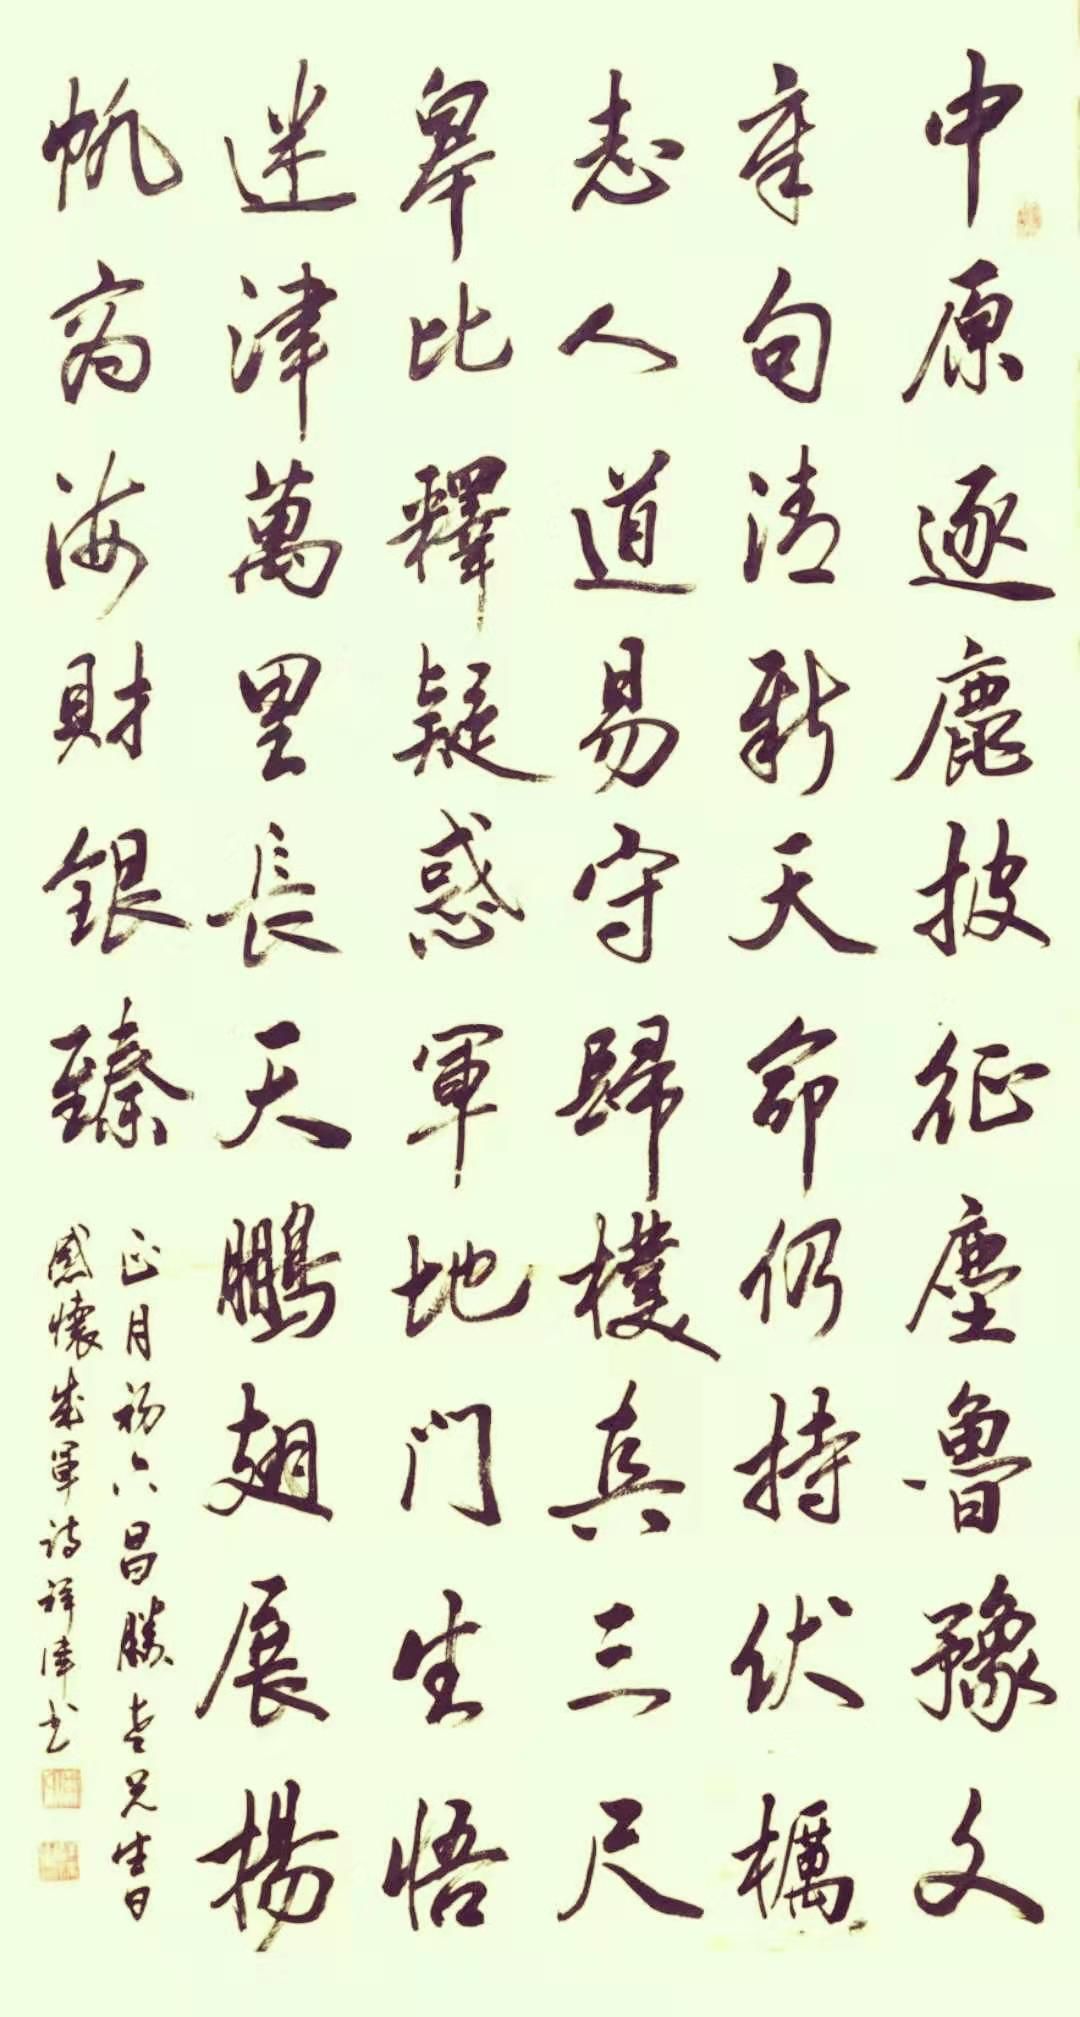 中原逐鹿披征塵魯豫文
章句清新天命仍持伏櫔
志人道易守歸樸真三尺
皋比釋疑惑軍地门生悟
迷津萬里長天鵬翅展揚
帆商海財銀臻
正月初六昌勝老兄生日
感懷成軍诗祥津书